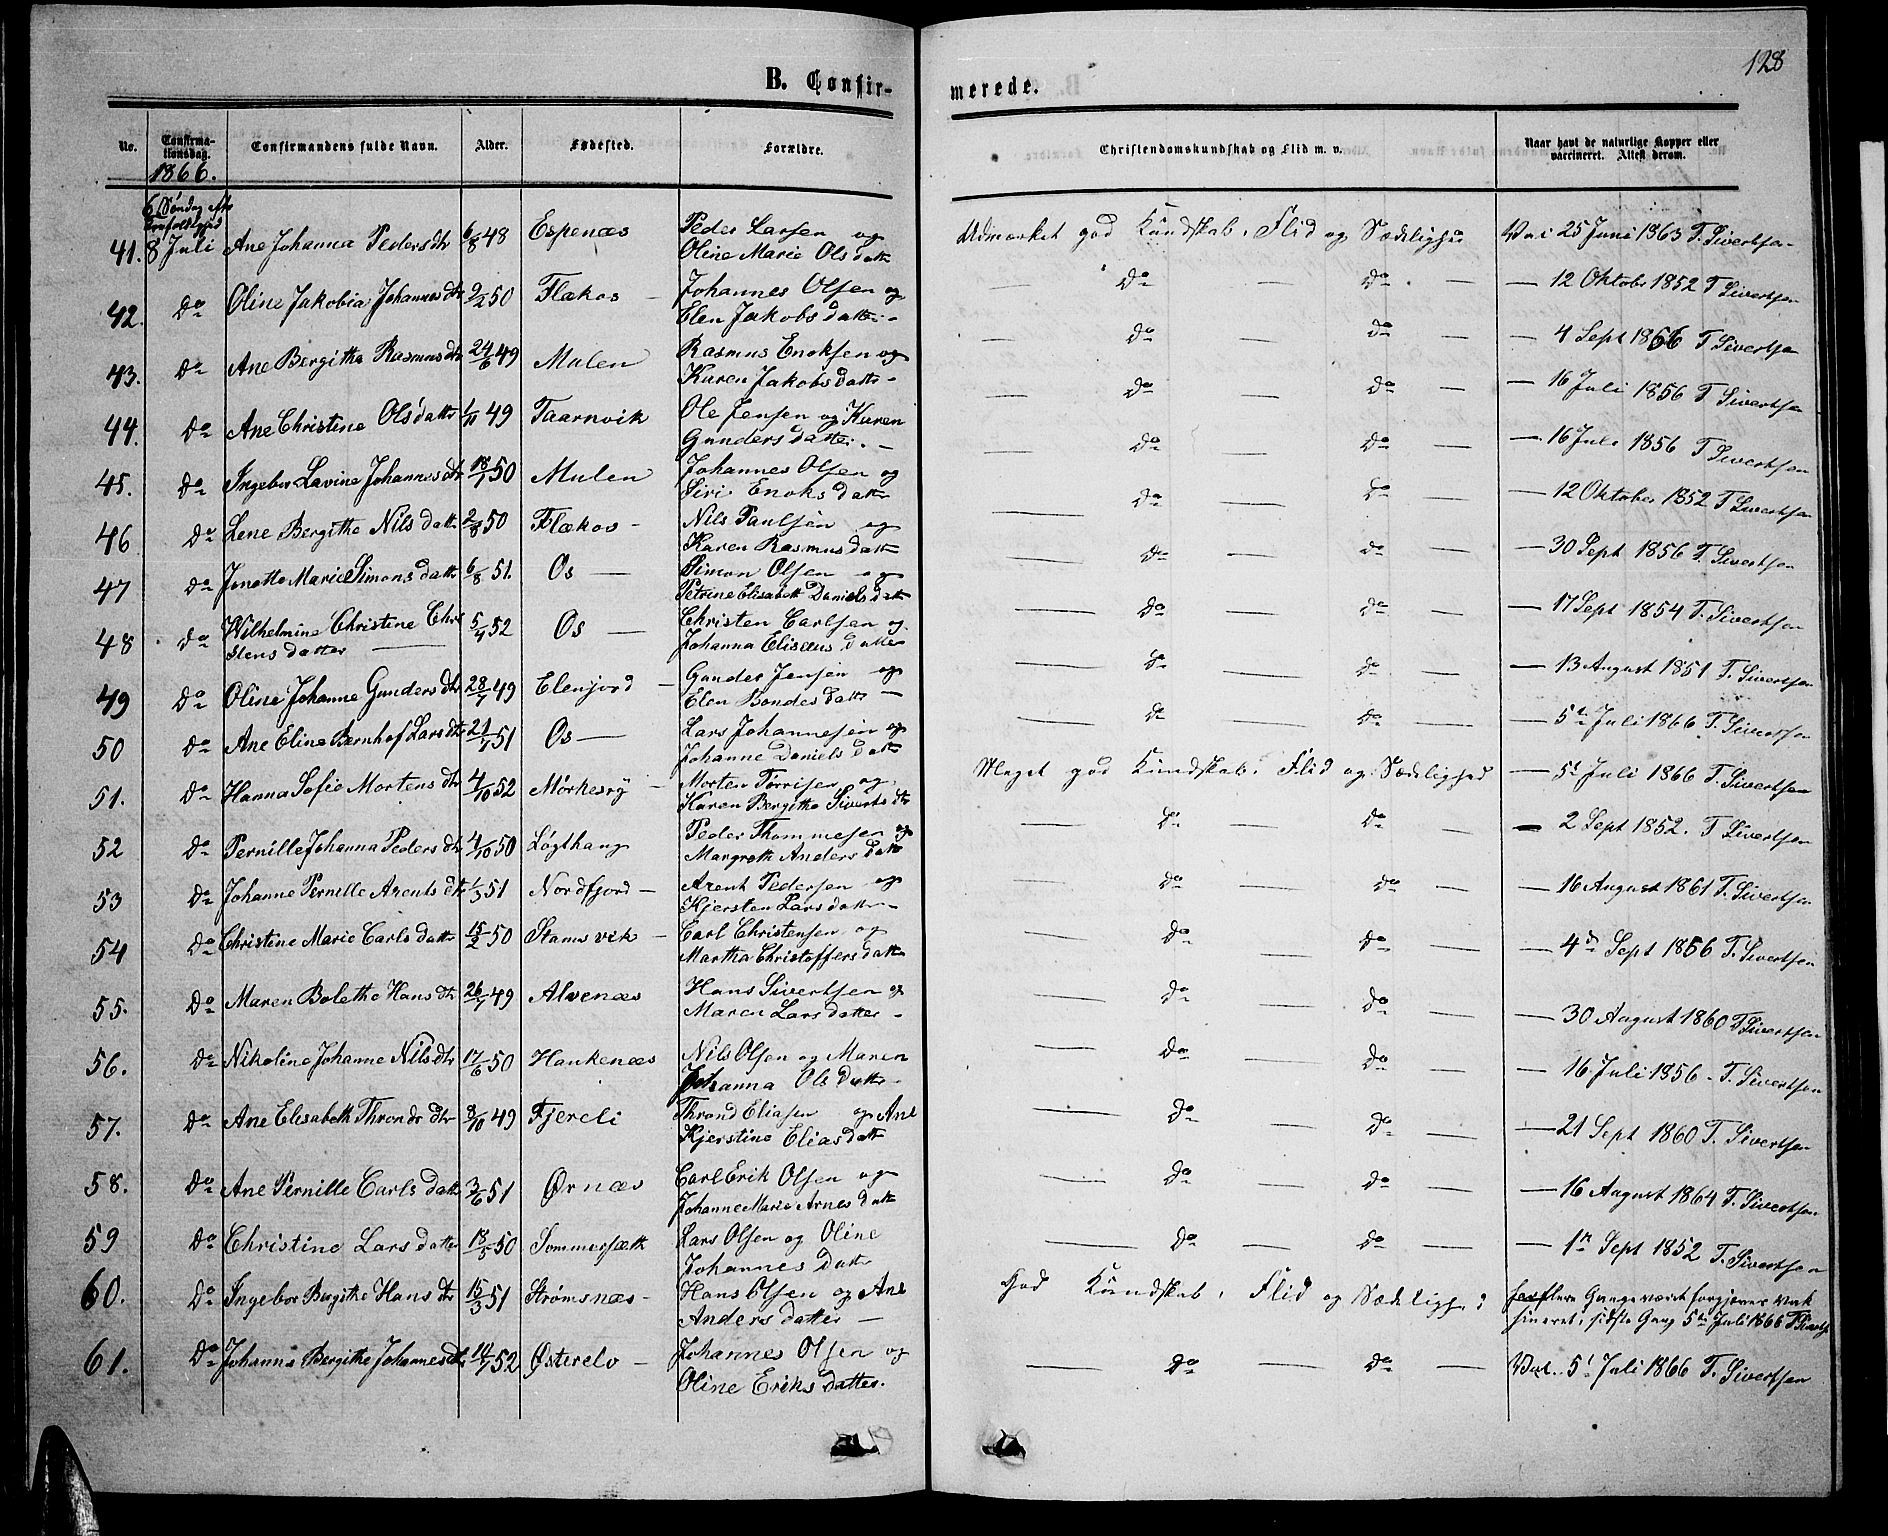 128
B. Confirmerede.
No. Confirmationsdag. Confirmandens fulde Navn. Alder. Fødested. Forældre. Christendomskundskab og Flid m. v. Naar havt de naturlige Kopper eller vaccineret. Attest derom.
1866.
6 Søndag
41. 8 Juli Ane Johanna Pedersdtr 6/8 48 Espenæs Peder Larsen og Oline Marie Olsdatter Udmærket god Kundskab, Flid og Sædelighed Va: 25 Juni 1863 T. Sivertsen
42. Do Oline Jakobia Johannesdtr 9/2 50 Flakos — Johannes Olsen og Elen Jakobsdatter — — Do — Do — — 12 Oktober 1852 T Sivertsen
43. Do Ane Bergitha Rasmusdtr 24/6 49 Mulen Rasmus Enoksen og Karen Jakobsdatter — — Do — Do — — 4 Sept 1866 T Sivertsen
44. Do Ane Christine Olsdatter 1/11 49 Taarnvik Ole Jensen og Karen Gundersdatter. — — Do — Do — — 16 Juli 1856 T Sivertsen
45. Do Ingebor Lavine Johannesdtr 18/1 50 Mulen Johannes Olsen og Siri Enoksdatter — Do — Do — — 16 Juli 1856 T Sivertsen
46 Do Lene Bergithe Nilsdatter 2/8 50 Flakos — Nils Paulsen og Karen Rasmusdatter — Do — Do — — 12 Oktober 1852 T Sivertsen
47 Do Jonette Marie Simonsdatter 6/8 51. Os — Simon Olsen og Petrine Elisabeth Danielsdatter — Do — Do — — 30 Sept 1856 T. Sivertsen
48 Do Wilhelmine Christine Christensdatter — 5/4 52 Os — Christen Carlsen og Johanna Eliseusdatter — Do — Do — — 17 Sept 1854 T. Sivertsen
49 Do Oline Johanne Gundersdtr 28/7 49 Elenjord — Gunder Jensen og Elen Bondesdatter — — Do — Do — — 13 August 1851 T. Sivertsen
50 Do Ane Eline Bernhof Larsdtr 21/7 51 Os — Lars Johannesen og Johanne Danielsdatter — Do — Do — — 5te Juli 1866 T. Sivertsen
51. Do Hanna Sofie Mortensdtr 4/10 52 Mørkesvy — Morten Torrisen og Karen Bergitha Sivertsdtr Meget god Kundskab, Flid og Sædelighed — 5t Juli 1866 T. Sivertsen
52 Do Pernille Johanna Pedersdtr 4/10 50 Løgthaug Peder Thommesen og Margreth Andersdatter — Do — Do — — 2 Sept 1852. T Sivertsen
53 Do Johanne Pernille Arentsdtr 1/3 51 Nordfjord — Arent Pedersen og Kjersten Larsdatter — — Do — Do — — 16 August 1861 T. Sivertsen
54 Do Christine Marie Carlsdatter 15/2 50 Stamsvik — Carl Christensen og Martha Christoffersdatter — Do — Do — — 4de Sept 1856 T. Sivertsen
55. Do Maren Bolethe Hansdtr 26/7 49 Alvenæs Hans Sivertsen og Maren Larsdatter — — Do — Do — — 30 August 1860 T Sivertsen
56. Do Nikoline Johanne Nilsdtr 17/6 50 Haukenæs Nils Olsen og Maren Johanna Olsdatter — — Do — Do — — 16 Juli 1856 — T. Sivertsen
57. Do Ane Elisabeth Throndsdtr 8/10 49 Fjereli Thrond Eliasen og Ane Kjerstine Eliasdatter — Do — Do — — 21 Sept 1860 T. Sivertsen
58. Do Ane Pernille Carlsdatter 3/6 51 Ørnæs Carl Erik Olsen og Johanne Marie Arnesdatter — Do — Do — — 16 August 1864 T. Sivertsen
59 Do Christine Larsdatter 18/5 50 Sommersæth Lars Olsen og Oline Johannesdatter — Do — Do — — 1n Sept 1852 T. Sivertsen
60. Do Ingebor Bergithe Hansdtr 15/3 51 Strømsnæs — Hans Olsen og Ane Andersdatter — God Kundskab, Flid og Sædelighed flere Gange været forgjæves vaksineret, sidste Gang 5te Juli 1866 T Sivertsen
61. Do Johanna Bergithe Johannesdtr 14/7 52 Østerelv — Johannes Olsen og Oline Eriksdatter. — Do — Do — Vac. 5t Juli 1866 T. Sivertsen